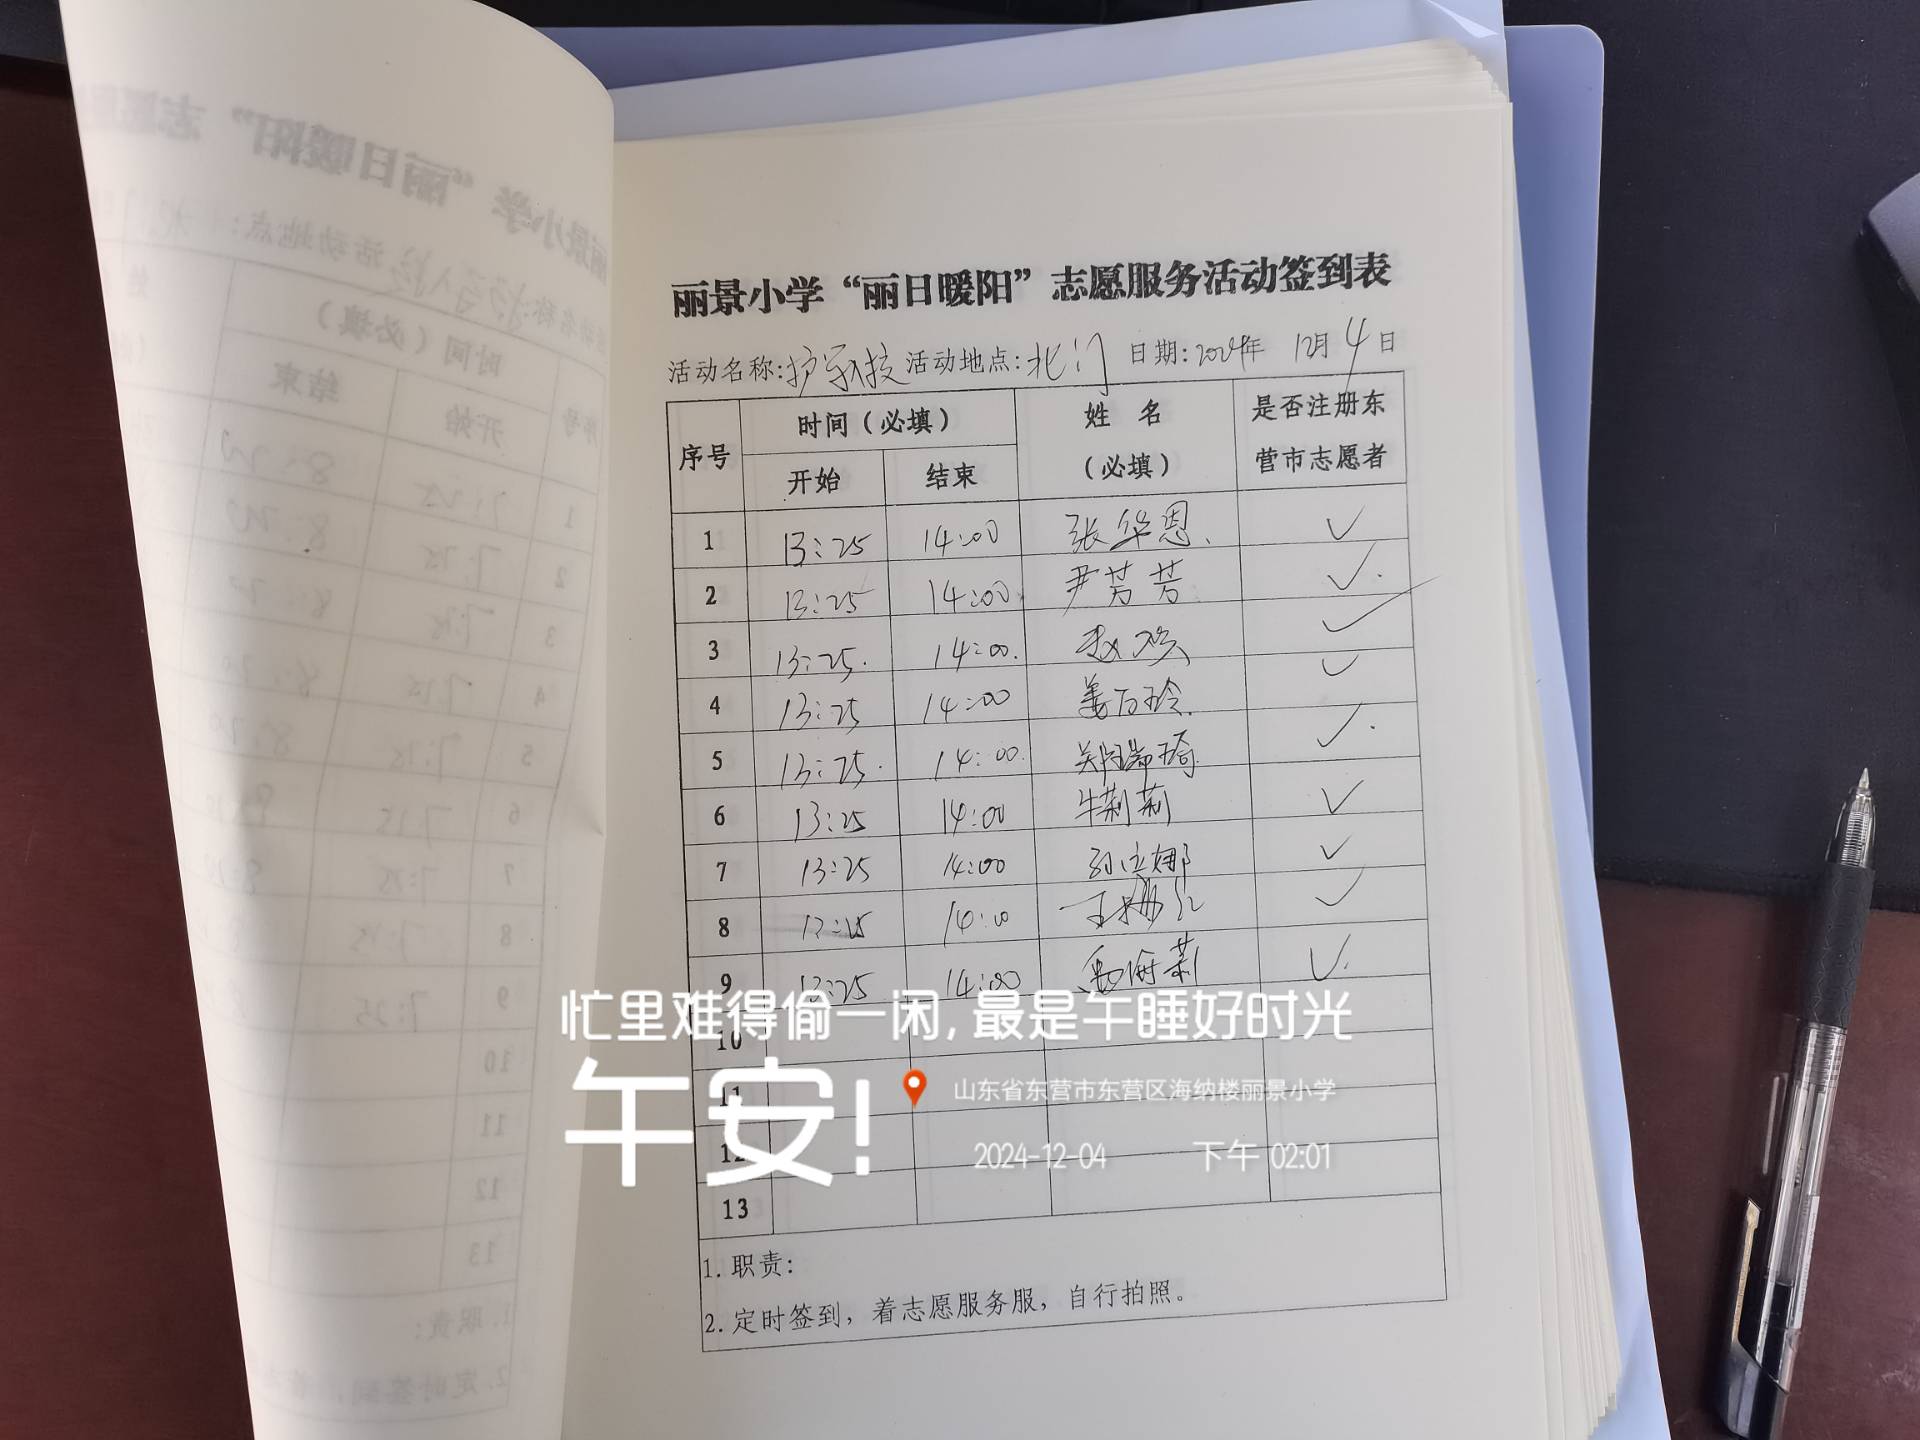 丽景小学“丽日暖阳”志愿服务活动签到表
活动名称:护学入校 活动地点:北门 日期:2024年 12月 4日
序号 时间(必填) 姓 名 (必填) 是否注册东营市志愿者
开始 结束
1 13:25 14:00 张华恩 ✓
2 13:25 14:00 尹芳芳 ✓
3 13:25 14:00 赵 ✓
4 13:25 14:00 姜 玲 ✓
5 13:25 14:00 郑瑞琦 ✓
6 13:25 14:00 牛莉莉 ✓
7 13:25 14:00 孙 娜 ✓
8 13:25 14:00 王 ✓
9 13:25 14:00 莉 ✓
忙里难得偷一闲,最是午睡好时光
10
午安!
山东省东营市东营区海纳楼丽景小学
11
12
2024-12-04 下午 02:01
13
1.职责:
2.定时签到,着志愿服务服,自行拍照。